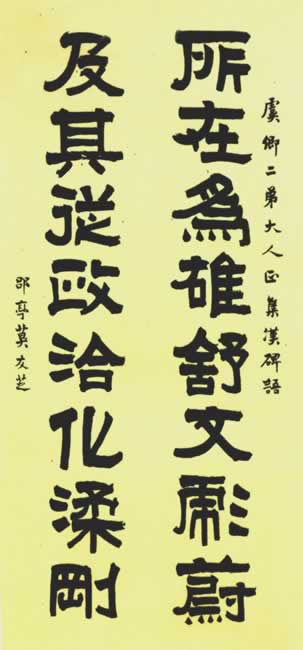 虞卿二弟大人正集漢碑語
所在爲雄舒文彪蔚
及其從政洽化渘剛
郘亭莫友芝